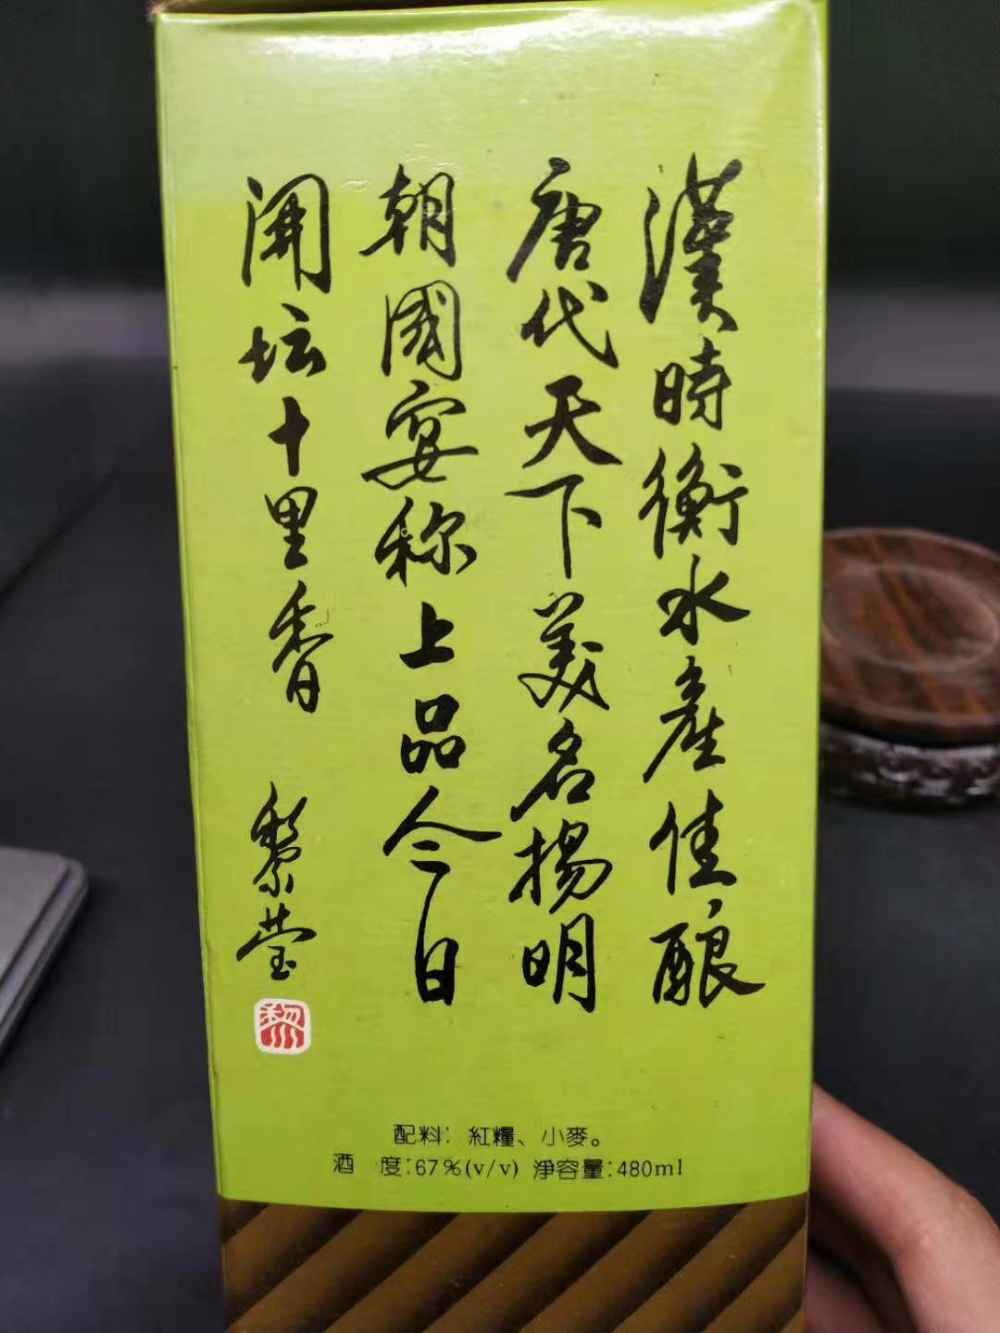 漢時衡水產佳酿
唐代天下美名揚明
朝國宴称上品今日
開坛十里香
黎莹
黎
配料：紅糧、小麥。
酒　度：67%(v/v) 淨容量：480ml